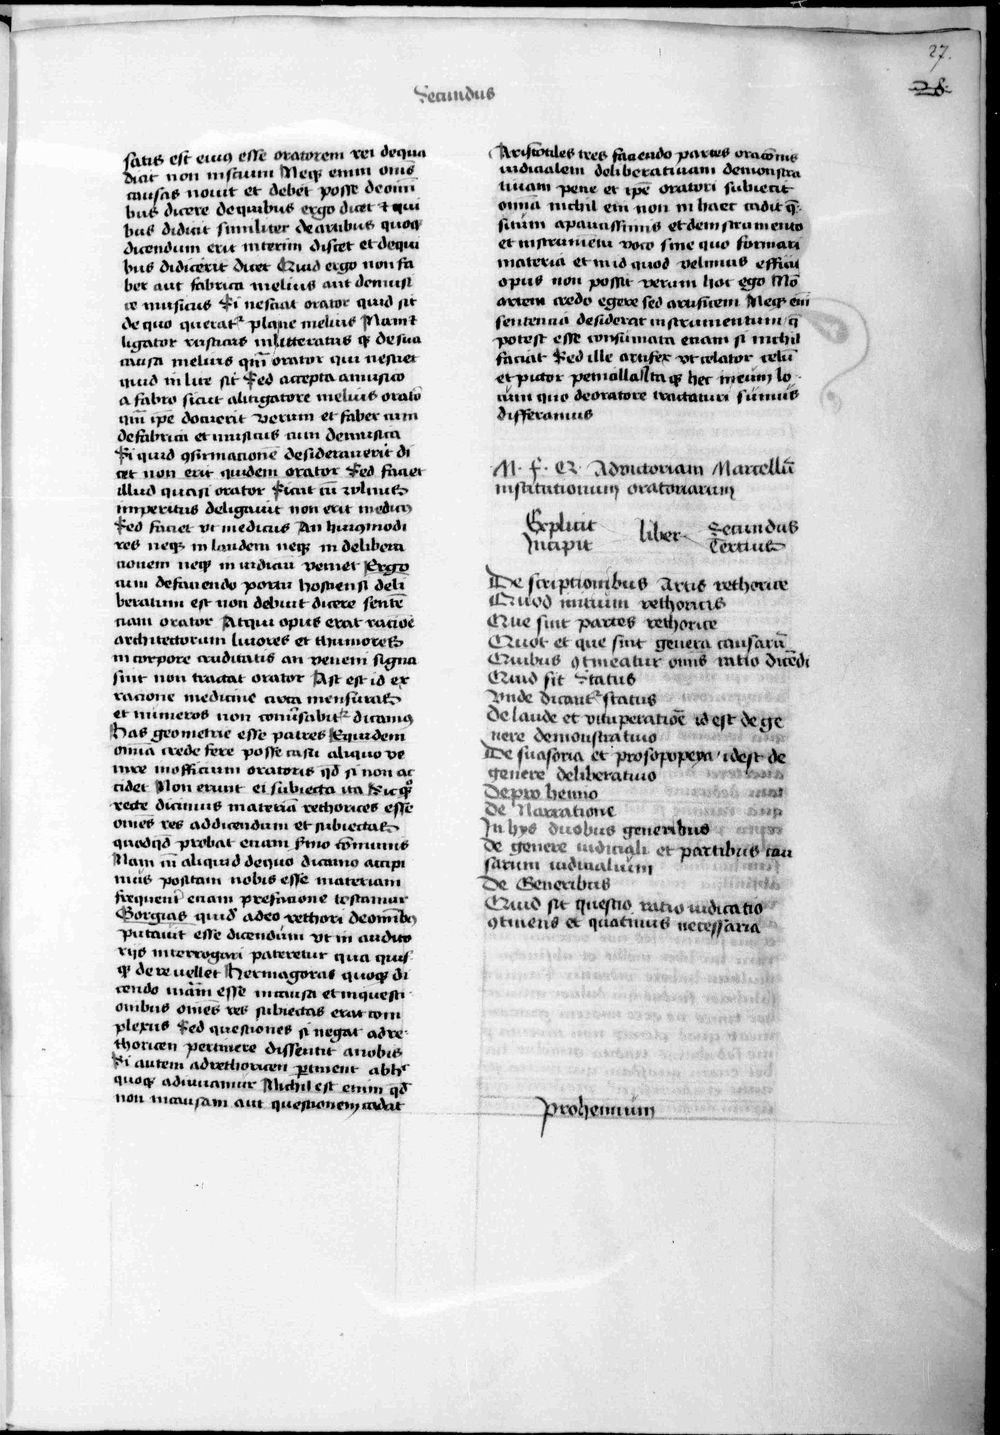 27.
28.
Secundus
satis est eius esse oratorem rei de qua
dicat non inscium Neqꝫ enim om̄s
causas nouit et debet posse de om̄i
bus dicere de quibus ergo dicet ⁊ qui
bus didicit similiter de artibus quoqꝫ
dicendum erit interim discet et de qui
bus didicerit dicet Quid ergo non fa
ber aut fabrica melius aut de musi
ce musicus Si nesciat orator quid sit
de quo querat᷑ plane melius Nam ⁊
ligator rusticus inlitteratus qꝫ de sua
causa melius qm̄ orator qui nesciet
quid in lite sit Sed accepta a musico
a fabro sicut a litigatore melius orato
qm̄ ip̄e docuerit verum et faber cum
de fabrica et musicus cum de musica
Si quid ꝯfirmacionē desiderauerit di
cet non erit quidem orator Sed faciet
illud quasi orator Sicut cū vulnus
imperitus deligauit non erit medicꝰ
Sed faciet vt medicus An huiꝰmodi
res neqꝫ in laudem neqꝫ in delibera
cionem neqꝫ in iudiciū veniet Ergo
cum de faciendo portu hostiensi deli
beratum est non debuit dicere sentē
ciam orator Atqui opus erat racioē
architectorum liuores et thumores
in corpore cruditatis an veneni signa
sint non tractat orator Ast est id ex
racione medicine circa mensuras
et numeros non conũsabit᷑ dicamꝰ
Has geometrie esse partes Equidem
omīa crede fere posse casu aliquo ve
nire in officium oratoris qd̄ si non ac
cidet Non erunt ei subiecta ita Sicqꝫ
recte dicimus materiā rethorices esse
omēs res ad dicendum et subiectas
quod qd̄ probat etiam s̄mo cōmunis
Nam cū aliquid de quo dicamo accipi
mus positam nobis esse materiam
frequent᷑ etiam prefacione testamur
Gorgias quid᷑ adeo rethori de omībꝰ
putauit esse dicendum vt in audito
rijs interrogari pateretur qua quis
qꝫ de re vellet Hermagoras quoqꝫ di
cendo mām̄ esse in causa et in questi
onibus omēs res subiectas erat com
plexus Sed questiones si negat ad re
thoricen pertinere dissentit a nobis
Si autem ad rethoricen ꝑtinent ab hͨ
quoqꝫ adiuuamur Nichil est enim qd̄
non in causam aut questionem cadat
Aristotiles tres faciendo partes oracōnis
iudicialem deliberatiuam demonstra
tiuam pene et ip̄e oratori subiecit
omīa nichil eni non in haec cadit q̄
situm a paucissimis et de instrumento
et instrumētū voco sine quo formari
materia et in id quod velimus effici
opus non possit verum hoc ego Nō
artem credo egere sed artificem Neqꝫ eni
sentencia desiderat instrumentum q̄
potest esse consumata etiam si nichil
faciat Sed ille artifex vt celator celū
et pictor penicilla Itaqꝫ hec in eum lo
cum quo de oratore tractaturi sumus
differamus
M · F · Q · Ad victoriam Marcellū
institutionum oratoriarum
Explicit liber Secundus
Incipit Tertius
De scriptionibus Artis rethorice
Quod initium rethorices
Que sint partes rethorice
Quot et que sint genera causarū
Quibus ꝯtineatur omīs ratio dicēdi
Quid sit Status
Vnde dicant᷑ status
De laude et vituperatiōe id est de ge
nere demonstratiuo
De suasoria et prosopopeya idest de
genere deliberatiuo
De pro hemio
de Narratione
In hys duobus generibus
de genere iudiciali et partibus cau
sarum iudicialium
de Generibus
Quid sit questio ratio iudicatio
ꝯtinens et quatinus necessaria
Prohemium